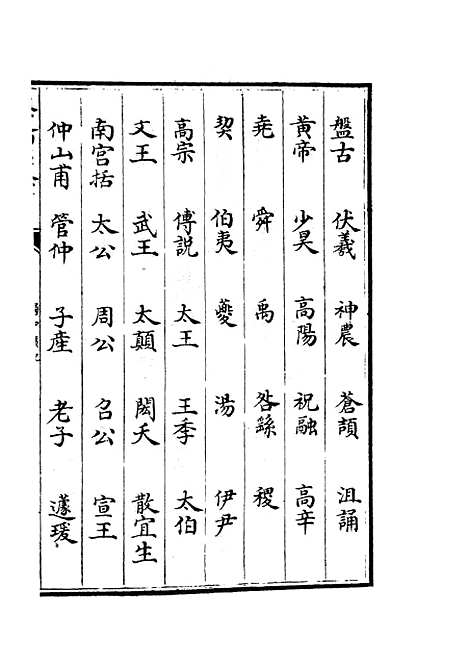 盤古 伏羲 神農 蒼頡 沮誦
黃帝 少昊 高陽 祝融 高辛
堯 舜 禹 咎繇 稷
契 伯夷 夔 湯 伊尹
高宗 傅說 太王 王季 太伯
文王 武王 太顛 閎夭 散宜生
南宮括 太公 周公 召公 宣王
仲山甫 管仲 子產 老子 蘧瑗